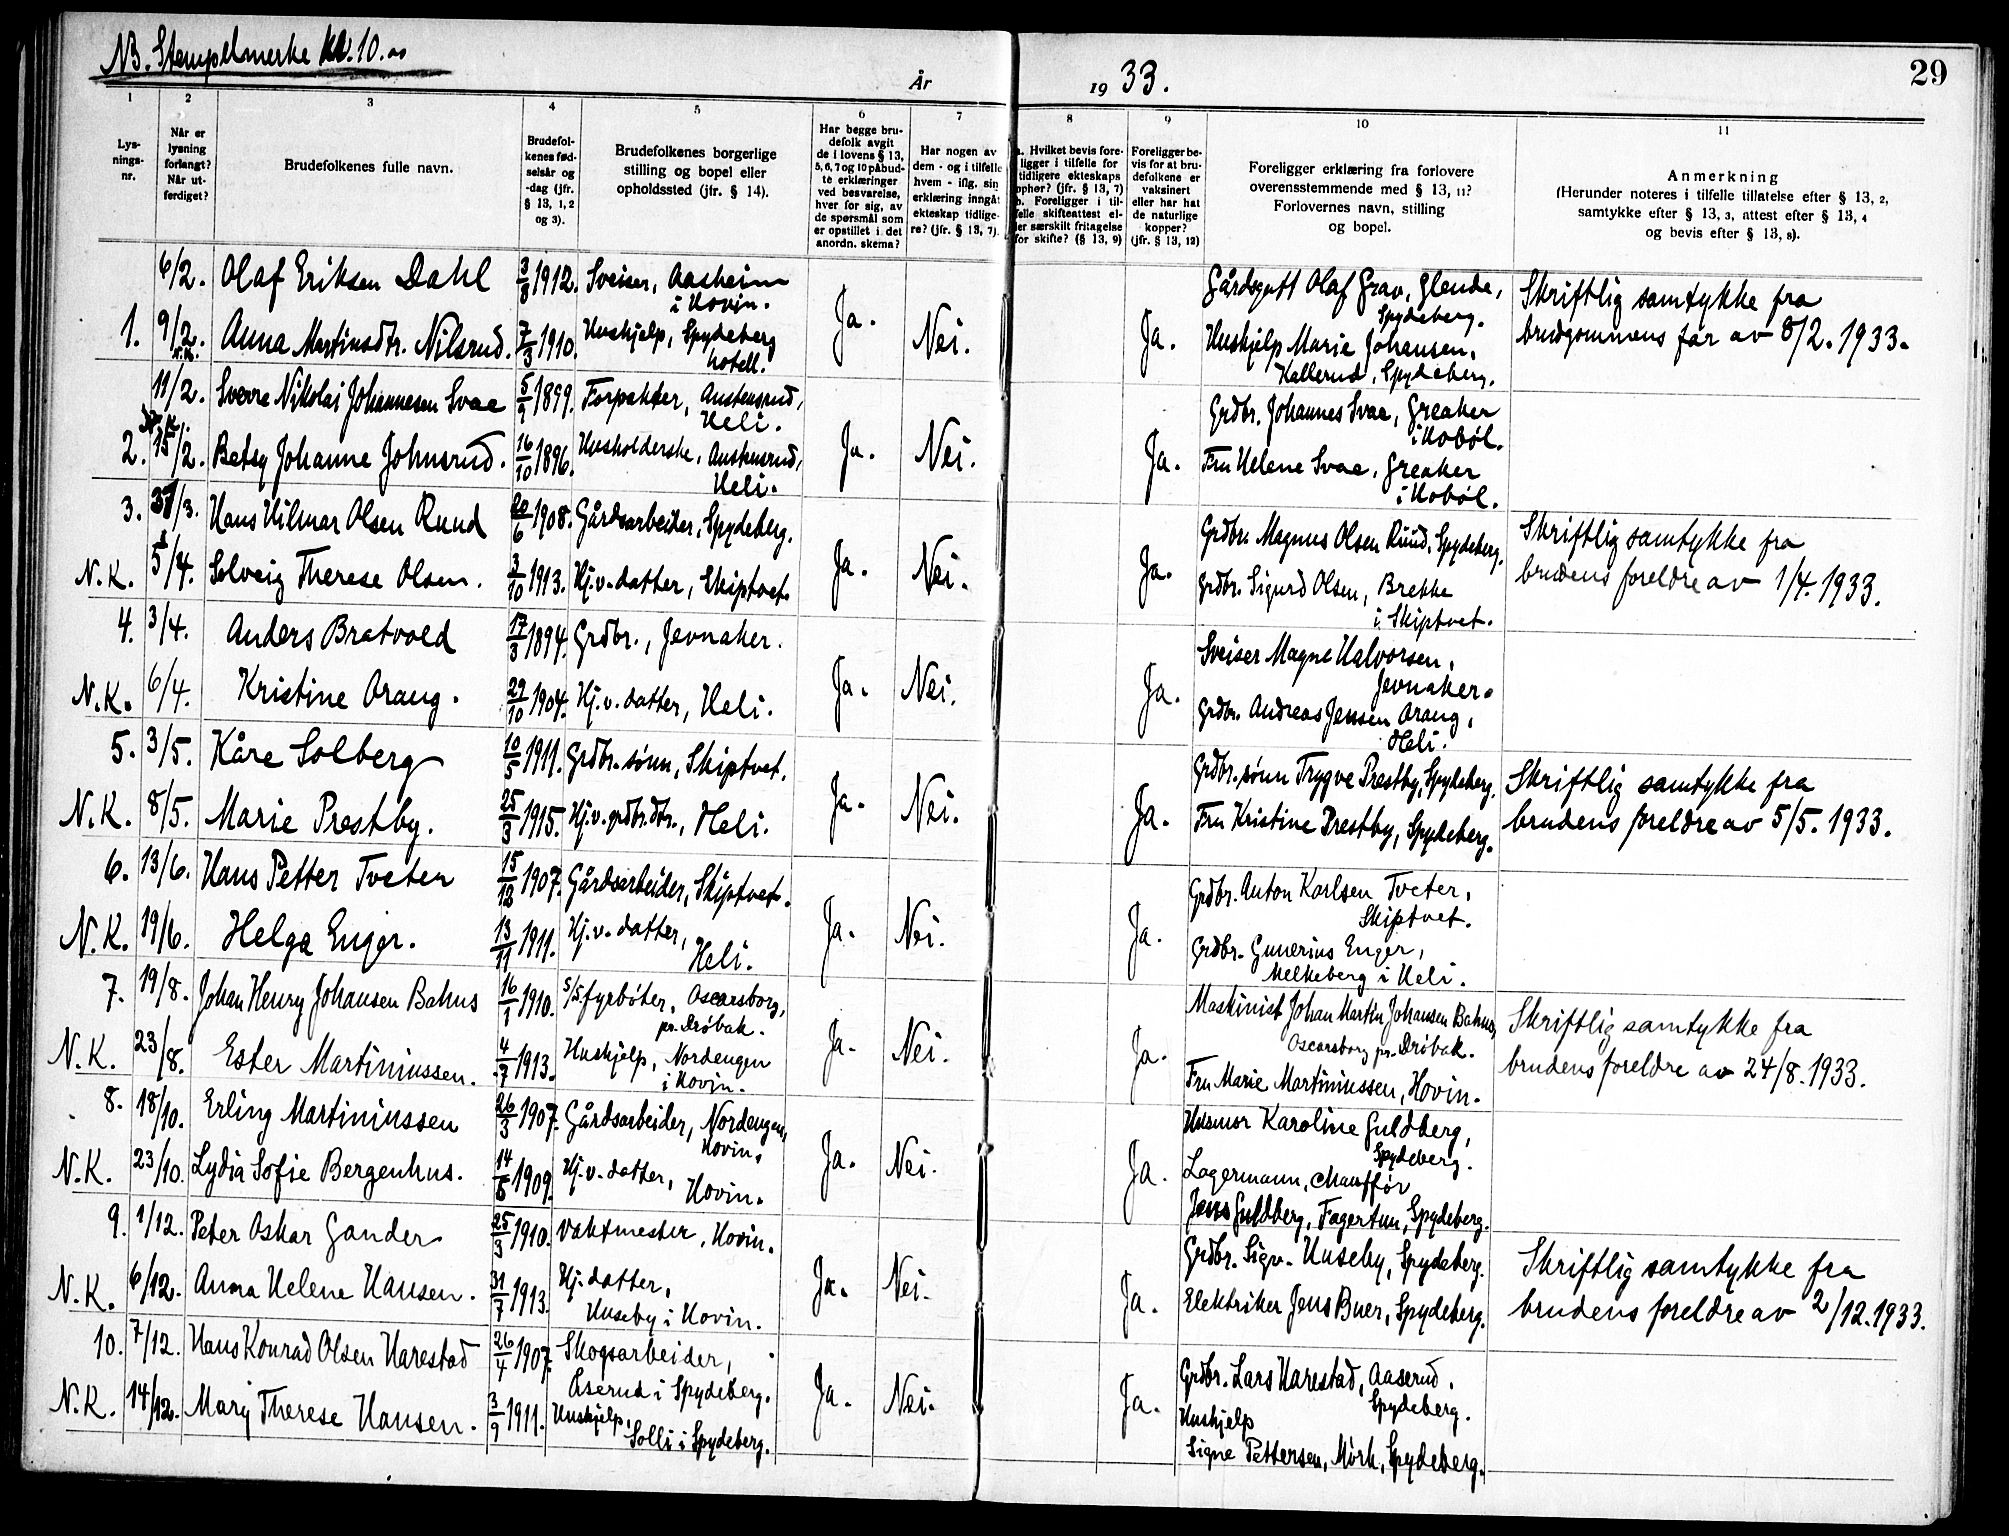 NB. Stempelmerke kr. 10.00
År
1933.
29
1
2
3
4
5
6
7
8
9
10
11
Lys-
nings-
nr.
Når er
lysning
forlangt?
Når ut-
ferdiget?
Brudefolkenes fulle navn.
Brudefol-
kenes fød-
selsår og
-dag (jfr.
§ 13, 1, 2
og 3).
Brudefolkenes borgerlige
stilling og bopel eller
opholdssted (jfr. § 14).
Har begge bru-
defolk avgit
de i lovens § 13,
5, 6, 7 og 10 påbud-
te erklæringer
ved besvarelse,
hver for sig, av
de spørsmål som
er opstillet i det
anordn. skema?
Har nogen av
dem - og i tilfelle
hvem - iflg. sin
erklæring inngåt
ekteskap tidlige-
re? (jfr. § 13, 7).
a. Hvilket bevis fore-
ligger i tilfelle for
tidligere ekteskaps
ophør? (jfr. § 13, 7)
b. Foreligger i til-
felle skifteattest el-
ler særskilt fritagelse
for skifte? (§ 13, 9)
Foreligger be-
vis for at bru-
defolkene er
vaksinert
eller har hat
de naturlige
kopper?
(jfr. § 13, 12)
Foreligger erklæring fra forlovere
overensstemmende med § 13, 11?
Forlovernes navn, stilling
og bopel.
Anmerkning
(Herunder noteres i tilfelle tillatelse efter § 13, 2,
samtykke efter § 13, 3, attest efter § 13, 4
og bevis efter § 13, 8).
6/2. Olaf Eriksen Dahl 3/8 1912. Sveiser, Aasheim
i Hovin.
1. 9/2. N.K. Anna Martinsdtr. Nilsrud. 7/3 1910. Hushjelp, Spydeberg
hotell.
Ja. Nei. Ja.
Gårdsgutt Olaf Grav, Glende,
Spydeberg.
Hushjelp Marie Johansen,
Kallerud, Spydeberg.
Skriftlig samtykke fra
brudgommens far av 8/2. 1933.
11/2. Sverre Nikolai Johannesen Svae 5/9 1899. Forpakter, Austensrud,
Heli.
2. 15/2. Betsy Johanne Johnsrud. 16/10 1896. Husholderske, Austensrud,
Heli.
Ja. Nei. Ja.
Grdbr. Johannes Svae, Greaker
i Hobøl.
Fru Helene Svae, Greaker
i Hobøl.
3. 31/3. Hans Hilmar Olsen Ruud 20/6 1908. Gårdsarbeider, Spydeberg.
N.K. 5/4. Solveig Therese Olsen. 3/10 1913. Hj.v. datter, Skiptvet.
Ja. Nei. Ja.
Grdbr. Magnus Olsen Ruud, Spydeberg.
Grdbr. Sigurd Olsen, Brekke
i Skiptvet.
Skriftlig samtykke fra
brudens foreldre av 1/4. 1933.
4. 3/4. Anders Bratvold 17/3 1894. Grdbr., Jevnaker.
N.K. 6/4. Kristine Oraug. 29/10 1904. Hj.v. datter, Heli.
Ja. Nei. Ja.
Sveiser Magne Halvorsen,
Jevnaker.
Grdbr. Andreas Jensen Oraug,
Heli.
5. 3/5. Kåre Solberg 10/5 1911. Grdbr. sønn, Skiptvet.
N.K. 8/5. Marie Prestby. 25/3 1915. Hj.v. grdbr.dtr., Heli.
Ja. Nei. Ja.
Grdbr. sønn Trygve Prestby, Spydeberg.
Fru Kristine Prestby, Spydeberg.
Skriftlig samtykke fra
brudens foreldre av 5/5. 1933.
6. 13/6. Hans Petter Tveter 15/12 1907. Gårdsarbeider, Skiptvet.
N.K. 19/6. Helga Enger. 13/11 1911. Hj.v. datter,
Heli.
Ja. Nei. Ja.
Grdbr. Anton Karlsen Tveter,
Skiptvet.
Grdbr. Gunerius Enger,
Melkeberg i Heli.
7. 19/8. Johan Henry Johansen Bahus 16/1 1910. S/S. fyrbøter, Oscarsborg,
pr. Drøbak.
N.K. 23/8. Ester Martiniussen. 4/7 1913. Hushjelp, Nordengen
i Hovin.
Ja. Nei. Ja.
Maskinist Johan Martin Johansen Bahus,
Oscarsborg pr. Drøbak.
Fru Marie Martiniussen, Hovin.
Skriftlig samtykke fra
brudens foreldre av 24/8. 1933.
8. 18/10. Erling Martiniussen 26/3 1907. Gårdsarbeider, Nordengen,
Hovin.
N.K. 23/10. Lydia Sofie Bergenhus. 14/8 1909. Hj.v. datter,
Hovin.
Ja. Nei. Ja.
Husmor Karoline Guldberg,
Spydeberg.
Lagermann, Chauffør
Jens Guldberg, Fagertun, Spydeberg.
9. 1/12. Peter Oskar Gander 25/3 1910. Vaktmester, Hovin.
N.K. 6/12. Anna Helene Hansen. 31/7 1913. Hj. datter,
Huseby i Hovin.
Ja. Nei. Ja.
Grdbr. Sigv. Huseby, Spydeberg.
Elektriker Jens Buer, Spydeberg.
Skriftlig samtykke fra
brudens foreldre av 2/12. 1933.
10. 7/12. Hans Konrad Olsen Harestad 26/4 1907. Skogsarbeider,
Åserud i Spydeberg.
N.K. 14/12. Mary Therese Hansen. 3/9 1911. Hushjelp,
Solli i Spydeberg.
Ja. Nei. Ja.
Grdbr. Lars Harestad, Aaserud.
Spydeberg.
Hushjelp
Signe Pettersen, Mørk, Spydeberg.